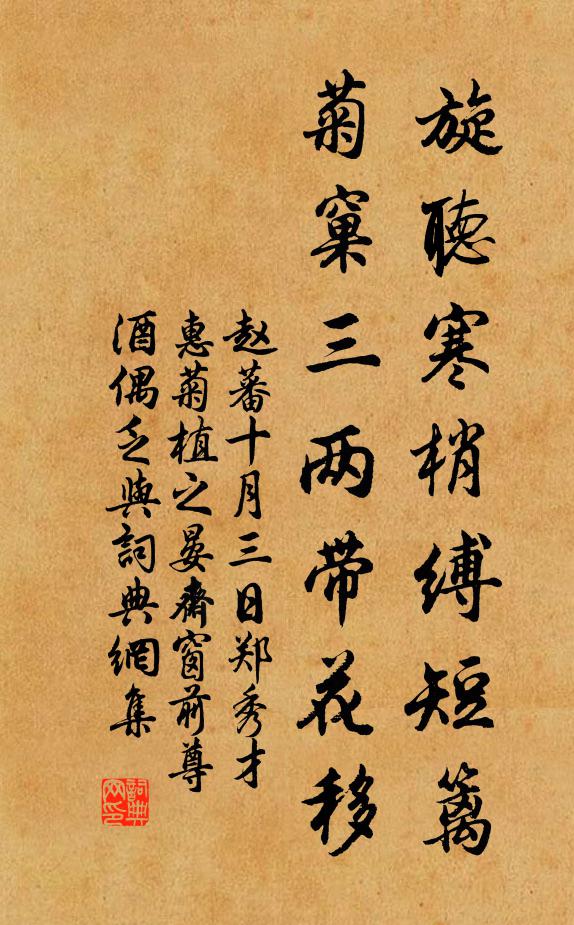 旋聽寒梢縛短籬
菊窠三两带花移
赵蕃十月三日郑秀才
惠菊植之晏齋窗前尊
酒偶乏與詞典網集
詞典网印